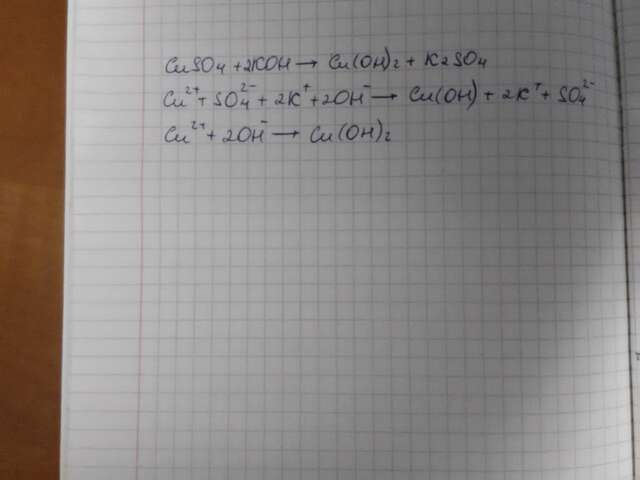 CuSO4 + 2KOH → Cu(OH)2 + K2SO4
Cu²⁺ + SO4²⁻ + 2K⁺ + 2OH⁻ → Cu(OH) + 2K⁺ + SO4²⁻
Cu²⁺ + 2OH⁻ → Cu(OH)2